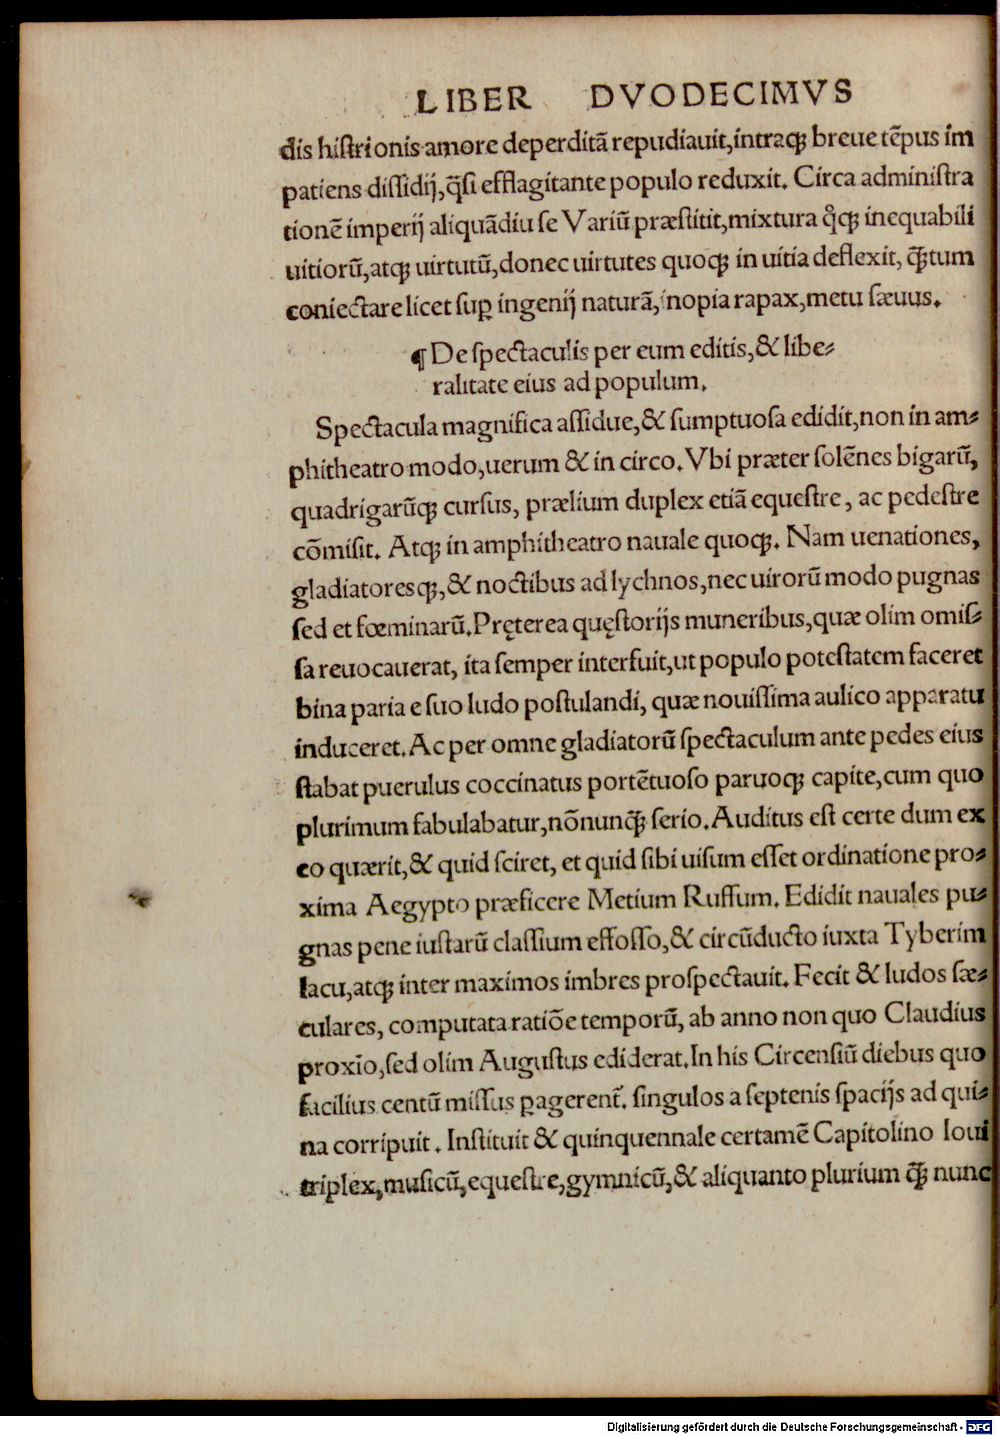 LIBER DVODECIMVS
dis histrionis amore deperditā repudiauit,intraqꝫ breue tẽpus im
patiens dissidij,q̃si efflagitante populo reduxit. Circa administra
tionẽ imperij aliquādiu se Variũ præstitit,mixtura q̊qꝫ inequabili
uitiorũ,atqꝫ uirtutũ,donec uirtutes quoqꝫ in uitia deflexit, q̃ꝫtum
coniectare licet suꝑ ingenij naturā,inopia rapax,metu sæuus.
¶ De spectaculis per eum editis,& libe⸗
ralitate eius ad populum.
Spectacula magnifica assidue,& sumptuosa edidit,non in am⸗
phitheatro modo,uerum & in circo.Vbi præter solẽnes bigarũ,
quadrigarũqꝫ cursus, prælium duplex etiā equestre, ac pedestre
cõmisit. Atqꝫ in amphitheatro nauale quoqꝫ. Nam uenationes,
gladiatoresqꝫ,& noctibus ad lychnos,nec uirorũ modo pugnas
sed et fœminarũ.Pręterea quęstorijs muneribus,quæ olim omis⸗
sa reuocauerat, ita semper interfuit,ut populo potestatem faceret
bina paria e suo ludo postulandi, quæ nouissima aulico apparatu
induceret.Ac per omne gladiatorũ spectaculum ante pedes eius
stabat puerulus coccinatus portẽtuoso paruoqꝫ capite,cum quo
plurimum fabulabatur,nõnunq̃ꝫ serio.Auditus est certe dum ex
eo quærit,& quid sciret, et quid sibi uisum esset ordinatione pro⸗
xima Aegypto præficere Metium Ruffum. Edidit nauales pu⸗
gnas pene iustarũ classium effosso,& circũducto iuxta Tyberim
lacu,atqꝫ inter maximos imbres prospectauit. Fecit & ludos sæ⸗
culares, computata ratiõe temporũ, ab anno non quo Claudius
proxīo,sed olim Augustus ediderat.In his Circensiũ diebus quo
facilius centũ missus ꝑagerent̃. singulos a septenis spacijs ad qui⸗
na corripuit . Instituit & quinquennale certamẽ Capitolino Ioui
triplex,musicũ,equestre,gymnicũ,& aliquanto plurium q̃ꝫ nunc
Digitalisierung gefördert durch die Deutsche Forschungsgemeinschaft - DFG